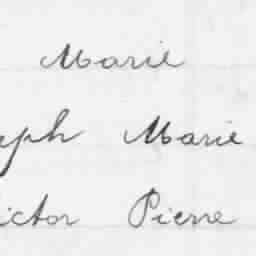 Marie
eph Marie
ictor Pierre